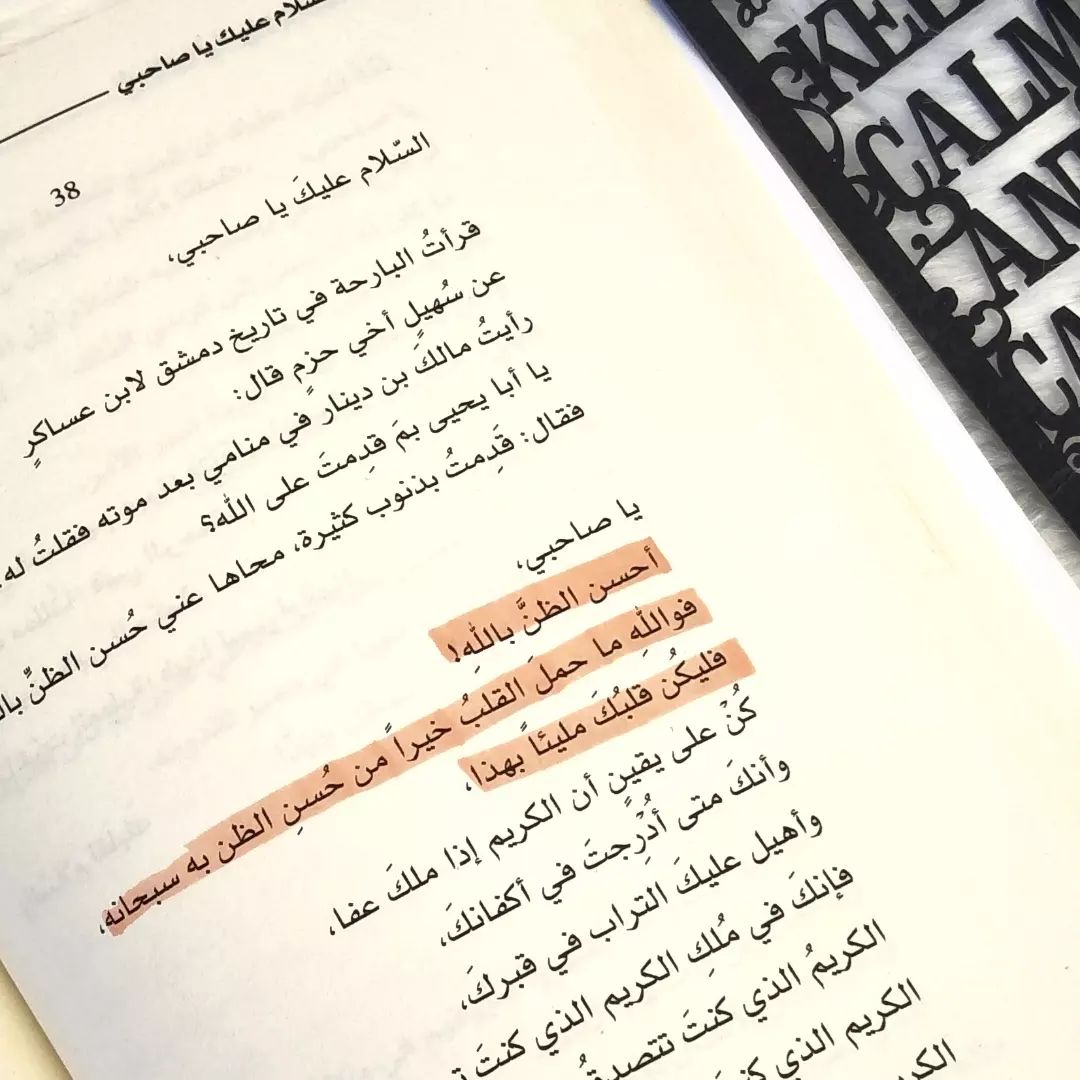 السلام عليك يا صاحبي
38
السّلام عليكَ يا صاحبي،
قرأتُ البارحة في تاريخ دمشق لابن عساكرٍ
عن سُهيلٍ أخي حزمٍ قال:
رأيتُ مالكَ بن دينار في منامي بعد موته فقلتُ له
يا أبا يحيى بمَ قدِمتَ على الله؟
فقال: قَدِمتُ بذنوب كثيرة، محاها عني حُسن الظنِّ
يا صاحبي،
أحسن الظنَّ باللهِ!
فواللهِ ما حملَ القلبُ خيراً من حُسنِ الظن به سبحانه،
فليكُن قلبُكَ مليئاً بهذا،
كُنْ على يقينٍ أن الكريم إذا ملكَ عفا،
وأنكَ متى أُدْرِجتَ في أكفانكَ،
وأهيل عليكَ التراب في قبركَ،
فإنكَ في مُلكِ الكريم الذي كنتَ
الكريمُ الذي كنتَ تتصدقُ
الكريم الذي
KEEP
CALM
AND